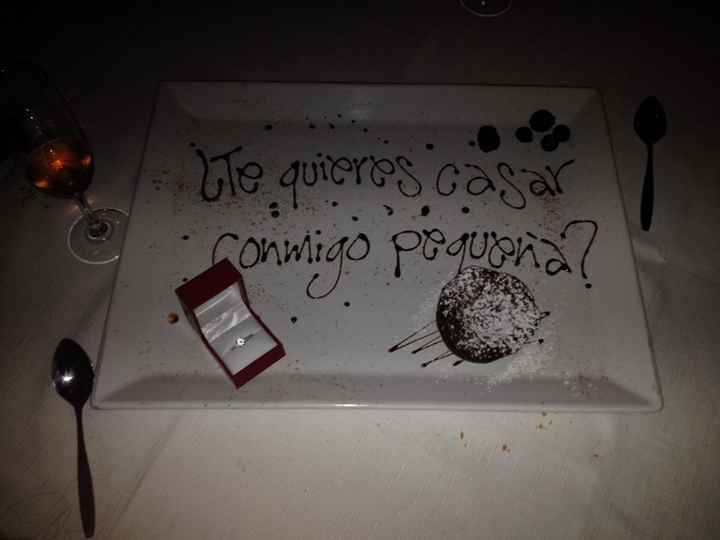 ¿Te quieres casar
conmigo pequeña?